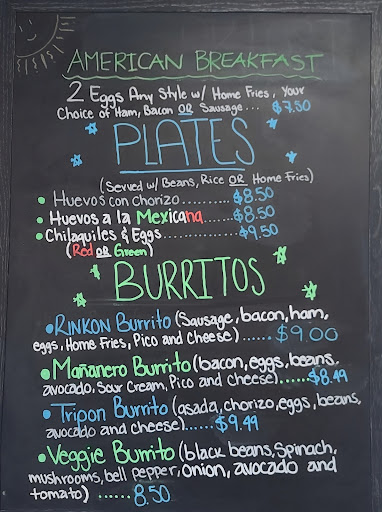 AMERICAN BREAKFAST
2 Eggs Any Style w/ Home Fries, Your
Choice of Ham, Bacon OR Sausage... $7.50
PLATES
(Served w/ Beans, Rice OR Home Fries)
• Huevos con chorizo.......... $8.50
• Huevos a la Mexicana...... $8.50
• Chilaquiles & Eggs............. $9.50
(Red OR Green)
BURRITOS
• RINKON Burrito (Sausage, bacon, ham,
eggs, Home Fries, Pico and Cheese) ...... $9.00
• Mañanero Burrito (bacon, eggs, beans,
avocado, Sour Cream, Pico and cheese)...... $8.49
• Tripon Burrito (asada, chorizo, eggs, beans,
avocado and cheese)...... $9.49
• Veggie Burrito (black beans, Spinach,
mushrooms, bell pepper, onion, avocado and
tomato) ...... 8.50